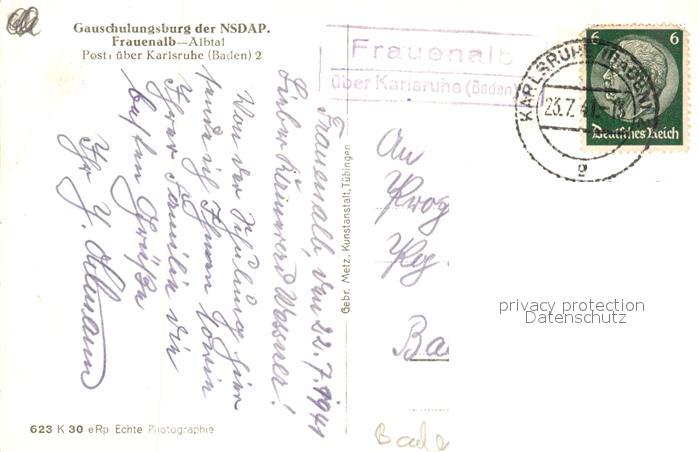 Gauschulungsburg der NSDAP.
Frauenalb—Albtal
Post: über Karlsruhe (Baden) 2
Frauenalb
über Karlsruhe (Baden)
KARLSRUHE (BADEN)
23.7.41
g
6 6
Deutsches Reich
Frauenalb, den 22.7.1941
Lieber Kamerad Wassner!
Von der Schulung hier
sende ich Ihnen sowie
Ihrer Familie die
besten Grüße
Ihr
Gebr. Metz, Kunstanstalt, Tübingen
An
Reg
Ba
Bade
privacy protection
Datenschutz
623 K 30 eRp Echte Photographie